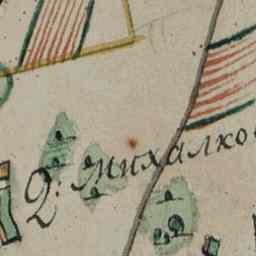 2: Михалко